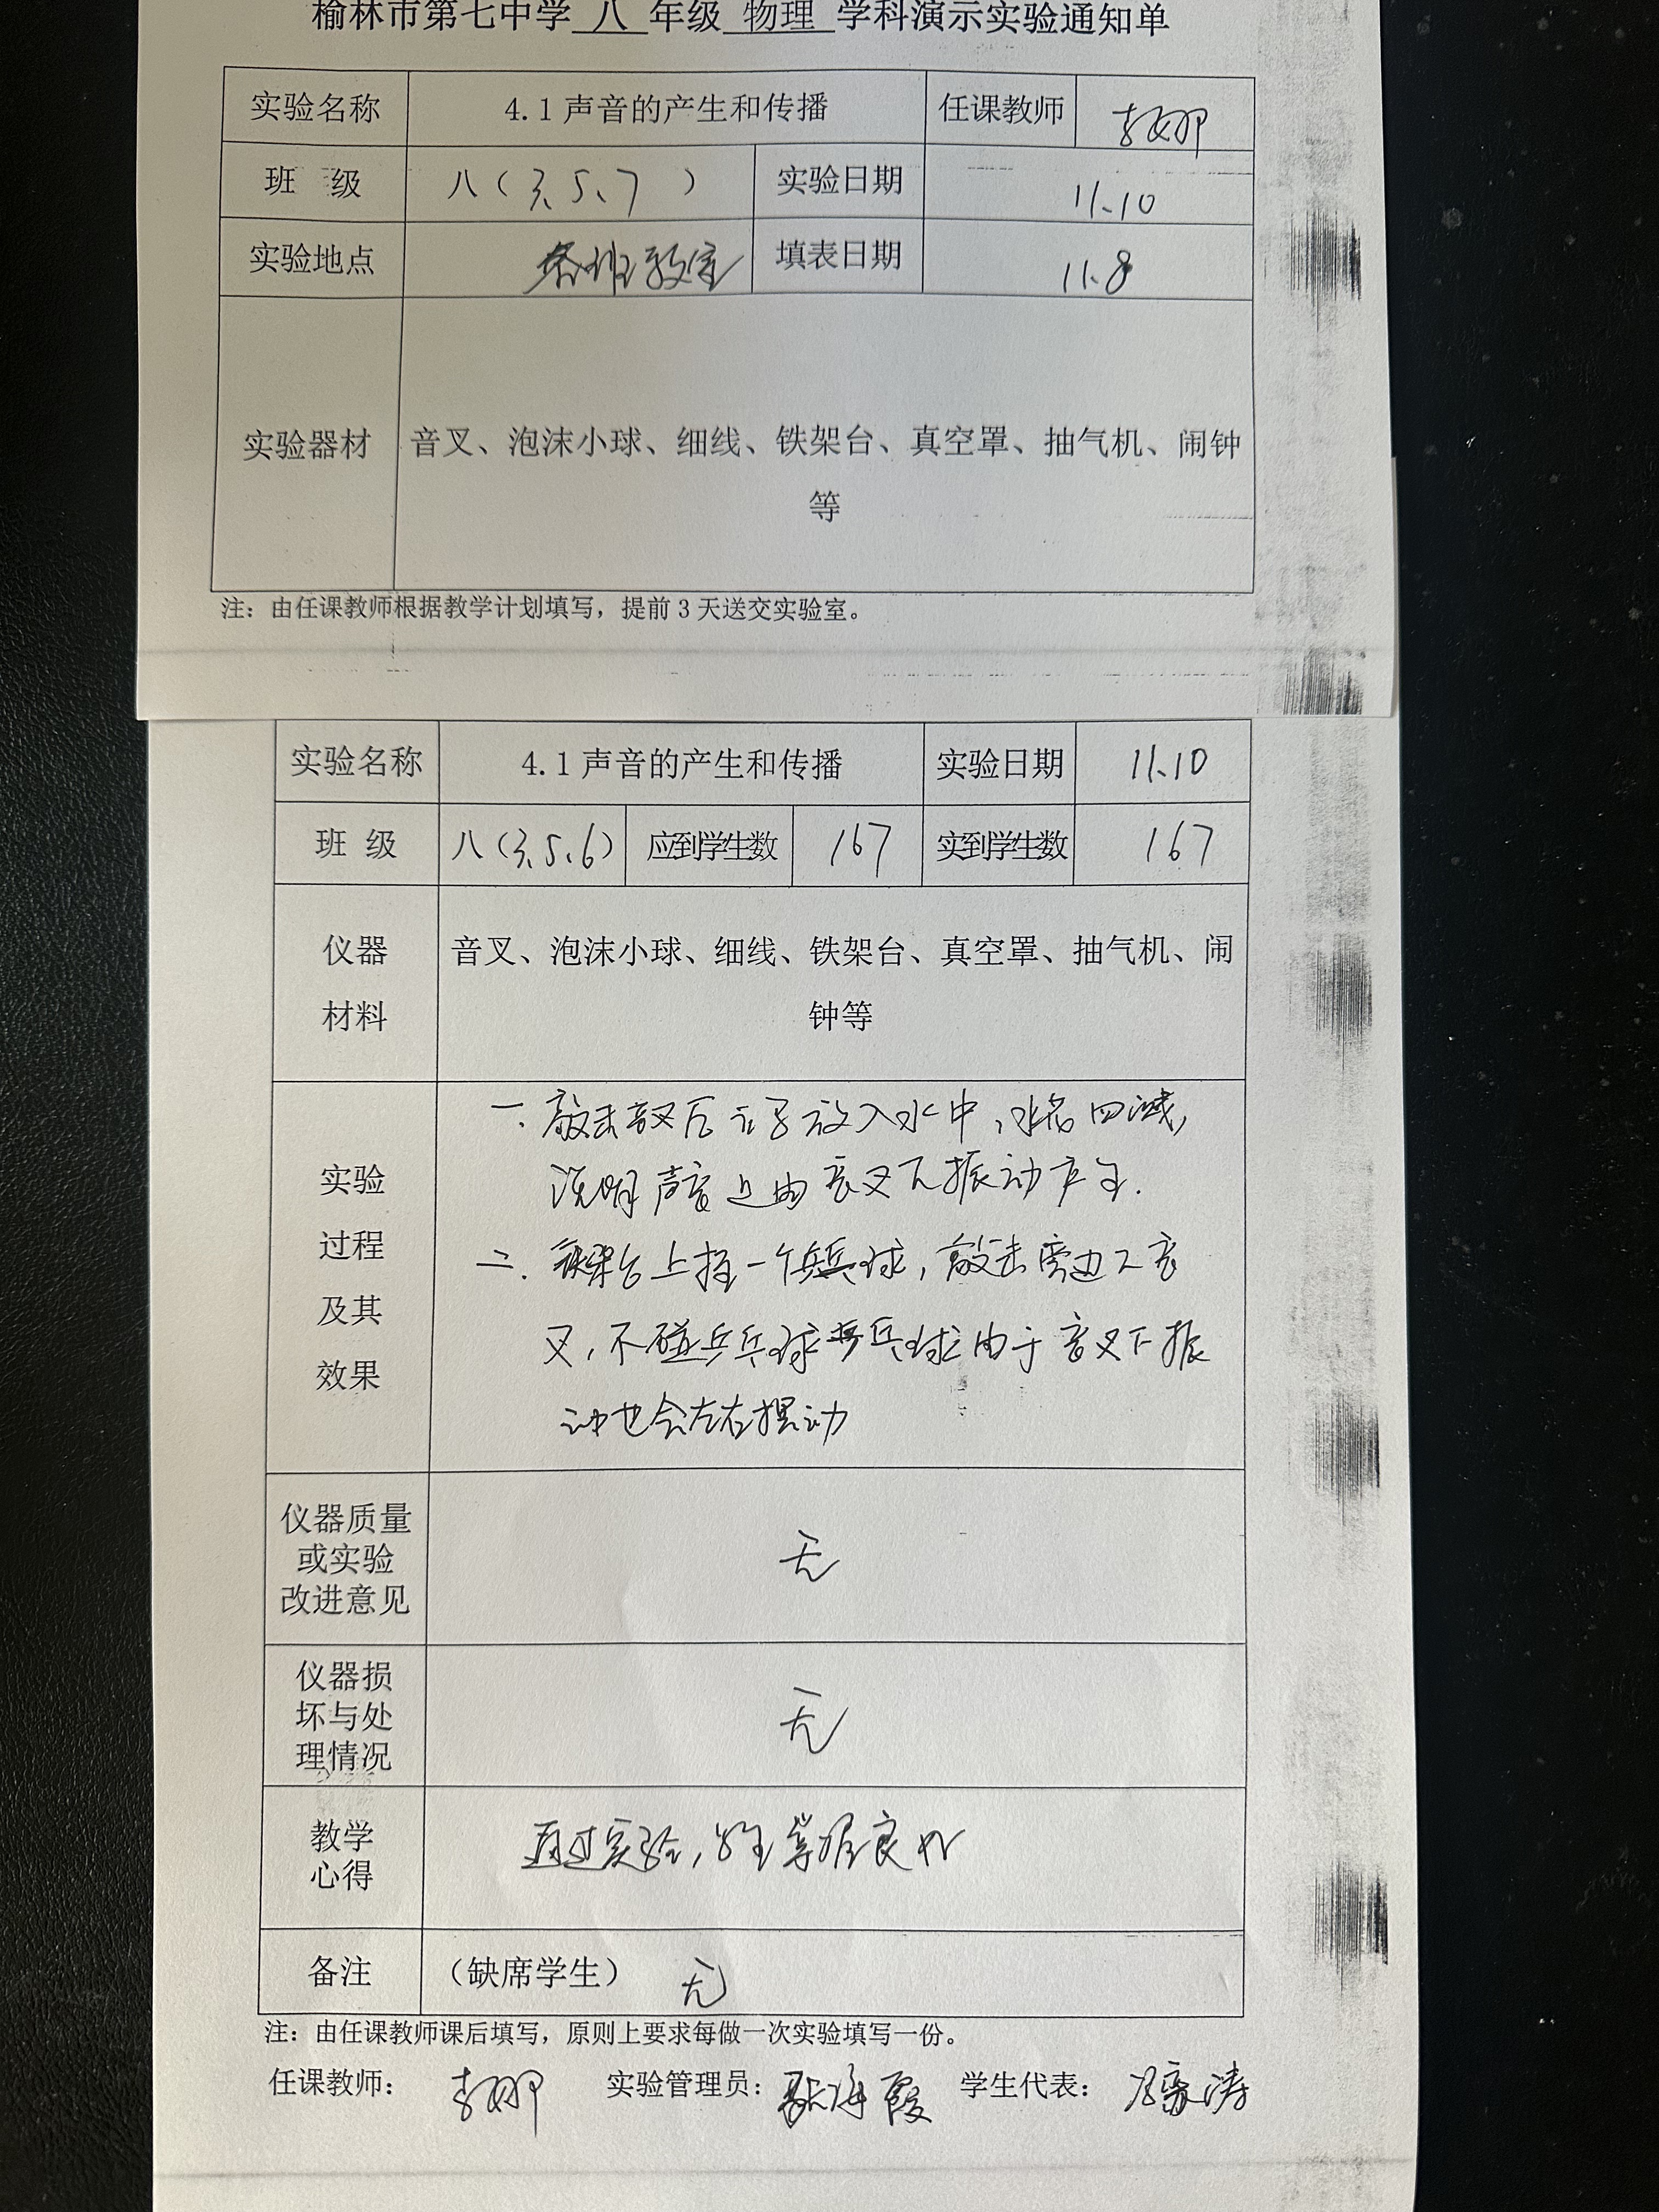 榆林市第七中学 八 年级 物理 学科演示实验通知单
实验名称 4.1 声音的产生和传播 任课教师 李娜
班 级 八（3、5、7 ） 实验日期 11.10
实验地点 各班教室 填表日期 11.8
实验器材 音叉、泡沫小球、细线、铁架台、真空罩、抽气机、闹钟
等
注：由任课教师根据教学计划填写，提前 3 天送交实验室。
实验名称 4.1 声音的产生和传播 实验日期 11.10
班 级 八（3、5、6） 应到学生数 167 实到学生数 167
仪器
材料
音叉、泡沫小球、细线、铁架台、真空罩、抽气机、闹
钟等
实验
过程
及其
效果
一. 敲击音叉后放入水中，水花四溅，
说明声音是由音叉的振动产生.
二. 铁架台上挂一个乒乓球，敲击旁边的音
叉，不碰乒乓球乒乓球由于音叉的振
动也会左右摆动
仪器质量
或实验
改进意见
无
仪器损
坏与处
理情况
无
教学
心得
通过实验，学生掌握良好
备注 （缺席学生） 无
注：由任课教师课后填写，原则上要求每做一次实验填写一份。
任课教师： 李娜 实验管理员： 海霞 学生代表： 涛